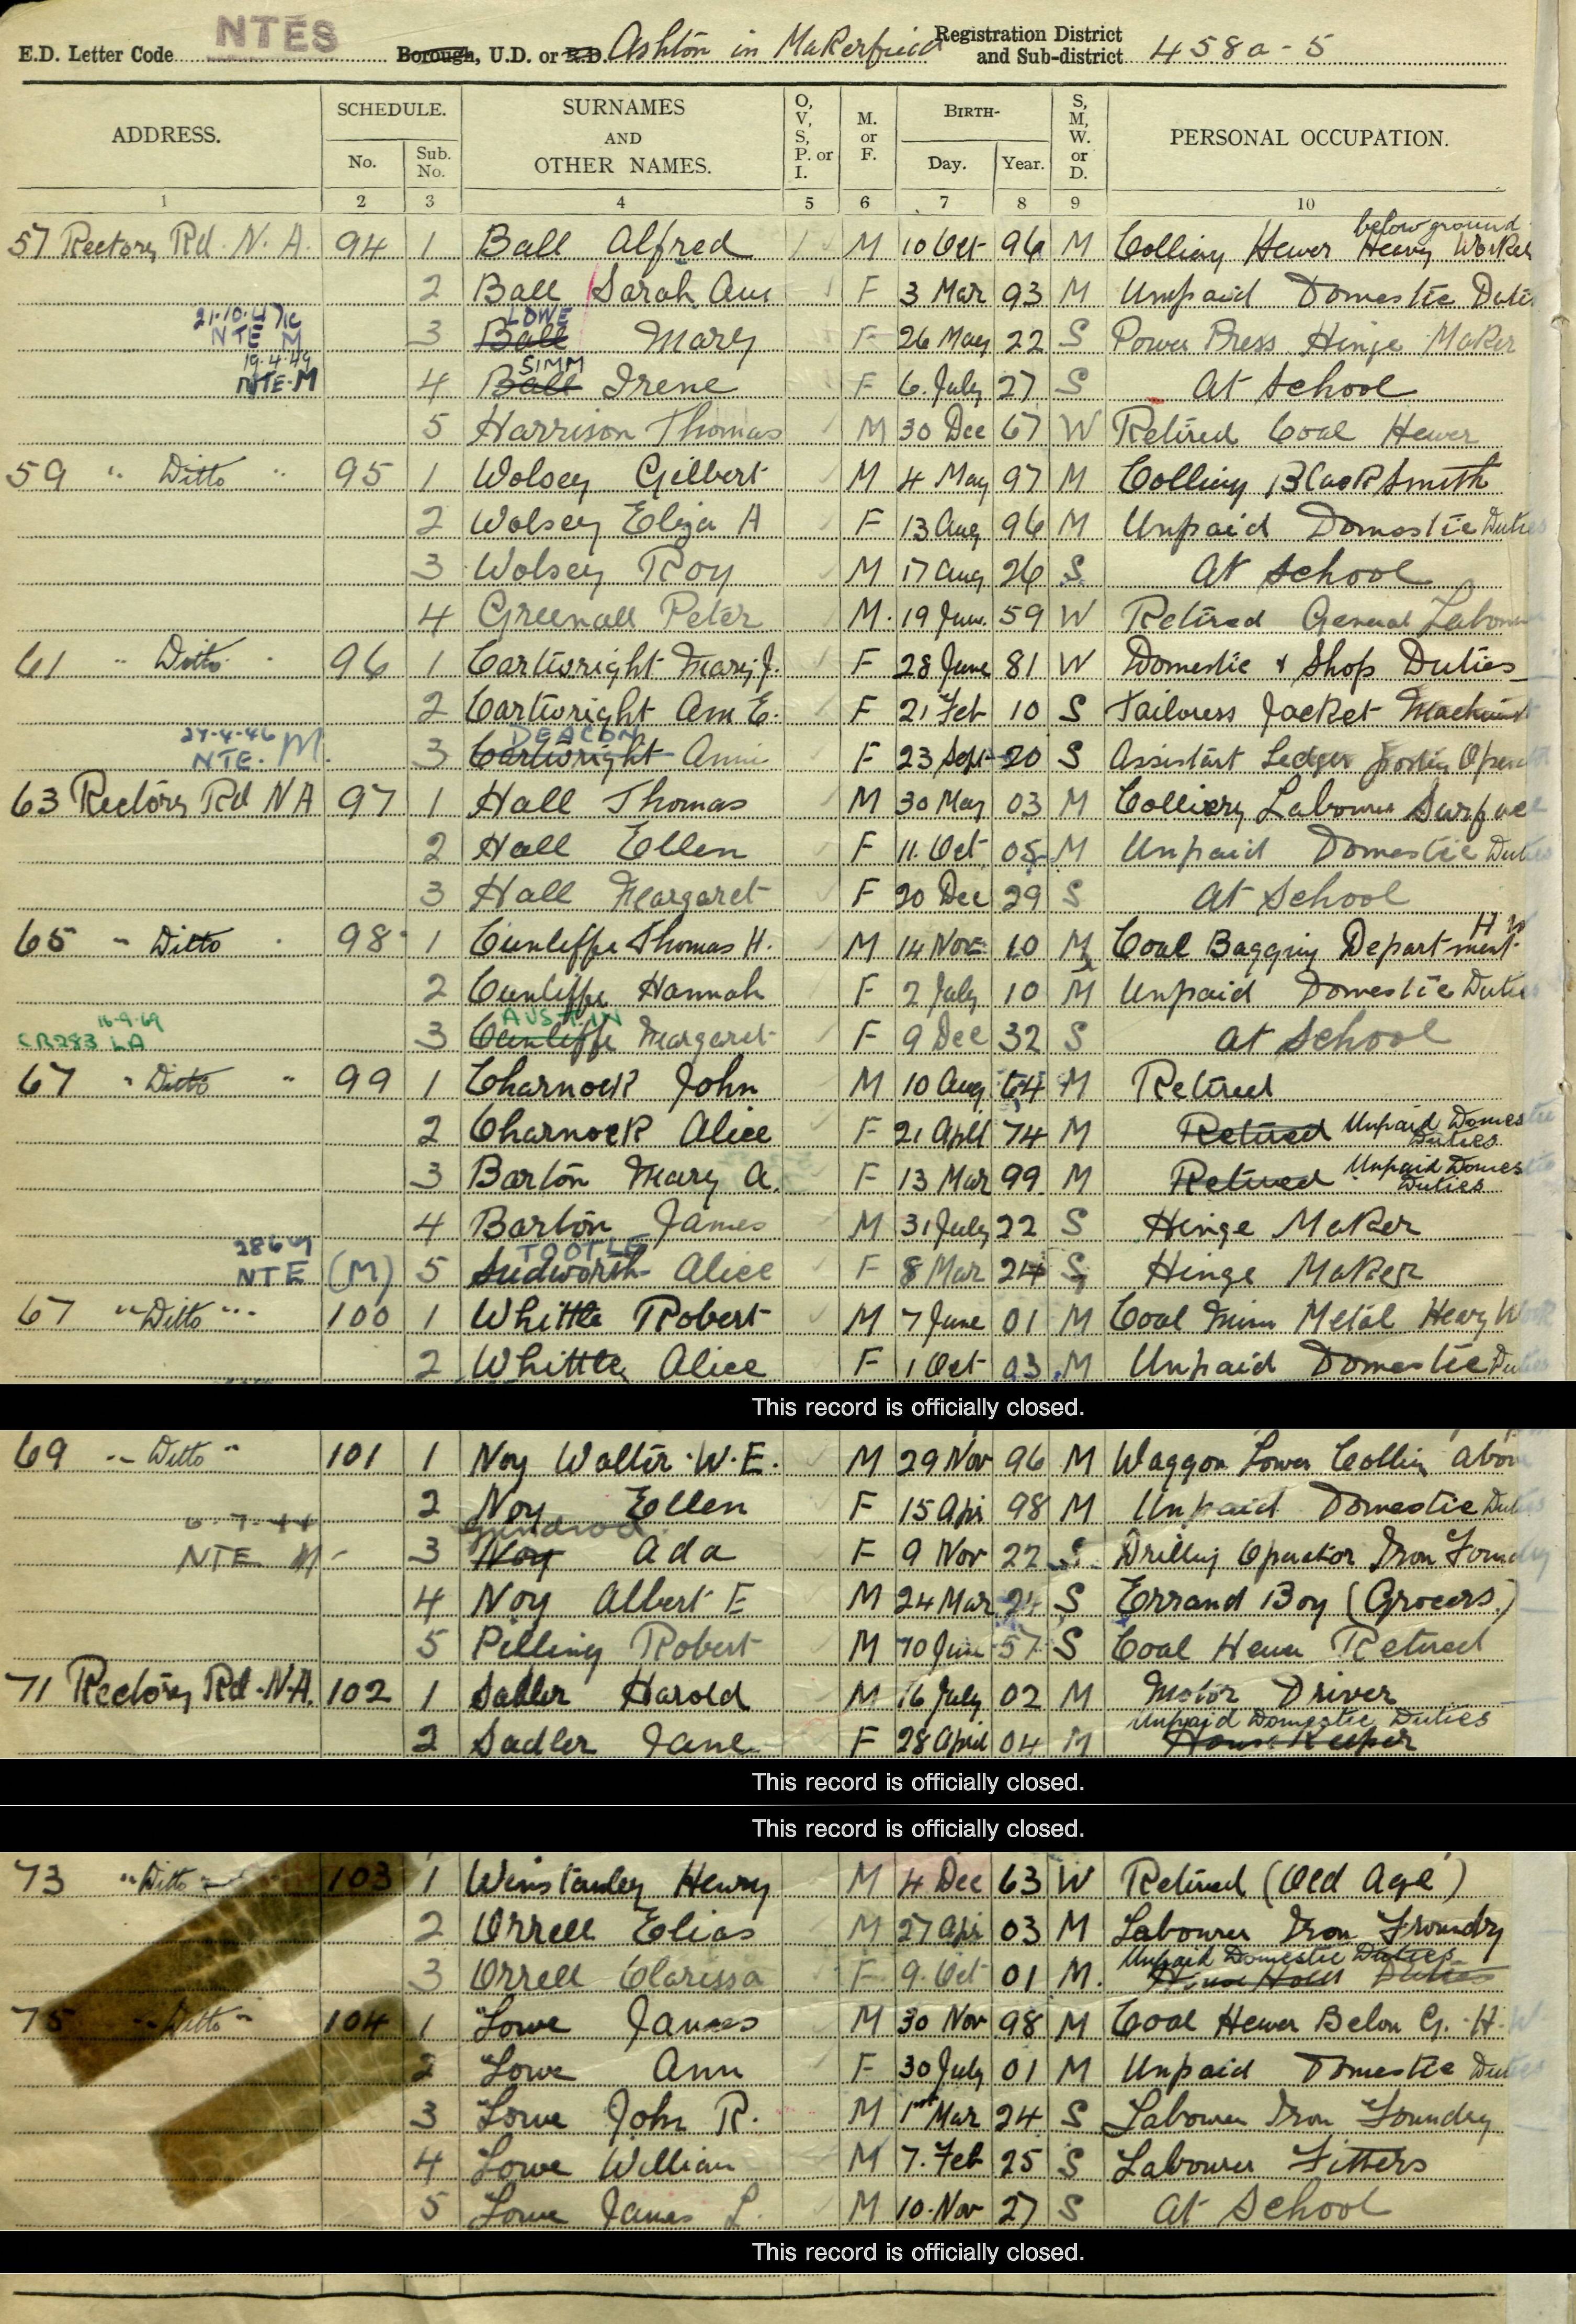 E.D. Letter Code NTES Borough, U.D. or R.D. Ashton in Makerfield Registration District and Sub-district 458a-5
ADDRESS. SCHEDULE. SURNAMES AND OTHER NAMES. O, V, S, P. or I. M. or F. BIRTH- S, M, W. or D. PERSONAL OCCUPATION.
No. Sub. No. Day. Year.
1 2 3 4 5 6 7 8 9 10
57 Rectory Rd N. A. 94 1 Ball Alfred M 10 Oct 96 M Colliery Hewer below ground Heavy Worker
2 Ball Sarah Ann F 3 Mar 93 M Unpaid Domestic Duties
21-10-47 NTE M 3 Ball LOWE Mary F 26 May 22 S Power Press Hinge Maker
19-4-49 NTE-M 4 Ball SIMM Irene F 6 July 27 S At School
5 Harrison Thomas M 30 Dec 67 W Retired Coal Hewer
59 " Ditto " 95 1 Wolsey Gilbert M 4 May 97 M Colliery BlackSmith
2 Wolsey Eliza A F 13 Aug 96 M Unpaid Domestic Duties
3 Wolsey Roy M 17 Aug 26 S At School
4 Greenall Peter M 19 59 W Retired General Labourer
61 " Ditto 96 1 Cartwright Mary J. F 28 June 81 W Domestic & Shop Duties
2 Cartwright Ann E. F 21 Feb 10 S Tailoress Jacket Machinist
27-4-46 NTE. M. 3 Cartwright DEACON Annie F 23 Sept 20 S Assistant Ledger Posting Operator
63 Rectory Rd N A 97 1 Hall Thomas M 30 May 03 M Colliery Labourer Surface
2 Hall Ellen F 11. Oct 05 M Unpaid Domestic Duties
3 Hall Margaret F 20 Dec 29 S At School
65 " Ditto 98 1 Cunliffe Thomas H. M 14 Nov 10 M Coal Bagging Department H W
2 Cunliffe Hannah F 2 July 10 M Unpaid Domestic Duties
16-9-69 CR283 LA 3 Cunliffe AUSTIN Margaret F 9 Dec 32 S At School
67 " Ditto " 99 1 Charnock John M 10 Aug 64 M Retired
2 Charnock Alice F 21 April 74 M Retired Unpaid Domestic Duties
3 Barton Mary A. F 13 Mar 99 M Retired Unpaid Domestic Duties
4 Barton James M 31 July 22 S Hinge Maker
NTE (M) 5 Sudworth TOOTLE Alice F 8 Mar 24 S Hinge Maker
67 " Ditto " 100 1 Whittle Robert M 7 June 01 M Coal Metal Heavy
2 Whittle Alice F 1 Oct 03 M Unpaid Domestic Duties
This record is officially closed.
69 " Ditto " 101 1 Noy Walter W. E. M 29 Nov 96 M Waggon
2 Noy Ellen F 15 Apr 98 M Unpaid Domestic Duties
6-7-44 NTE M 3 Noy Ada F 9 Nov 22 S Drilling Operator Iron Foundry
4 Noy Albert E M 24 Mar 24 S Errand Boy (Grocers)
5 Pilling Robert M 10 57 S Coal Hewer Retired
71 Rectory Rd. N.A. 102 1 Sadler Harold M 16 July 02 M Motor Driver
2 Sadler Jane F 28 April 04 M Unpaid Domestic Duties House Keeper
This record is officially closed.
This record is officially closed.
73 " Ditto 103 1 Winstanley Henry M 4 Dec 63 W Retired (Old Age)
2 Orrell Elias M 27 Apr 03 M Labourer Iron Foundry
3 Orrell Clarissa F 9. Oct 01 M. Unpaid Domestic Duties House Hold Duties
75 " Ditto " 104 1 Lowe James M 30 Nov 98 M Coal Hewer Below G. H. W
2 Lowe Ann F 30 July 01 M Unpaid Domestic Duties
3 Lowe John R. M 1st Mar 24 S Labourer Iron Foundry
4 Lowe William M 7. Feb 25 S Labourer Fitters
5 Lowe James L. M 10. Nov 27 S At School
This record is officially closed.